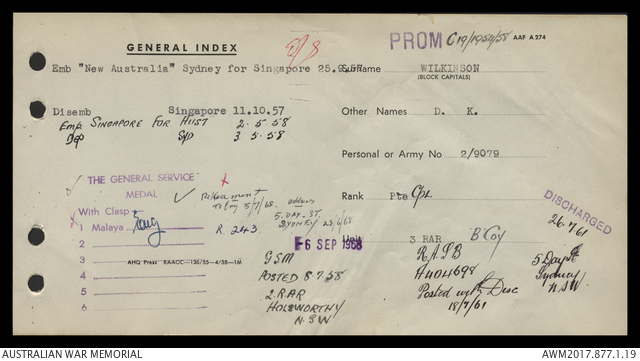 GENERAL INDEX
PROM C19/1954/58 AAF A 274
Emb "New Australia" Sydney for Singapore 25.9.57
Surname WILKINSON
(BLOCK CAPITALS)
Disemb Singapore 11.10.57
Emb SINGAPORE FOR AUST 2.5.58
3.5.58
Other Names D. K.
Personal or Army No 2/9079
Rank Pte Cpl
Unit 3 RAR B Coy
DISCHARGED
26.7.61
THE GENERAL SERVICE
MEDAL
With Clasp
1 Malaya
2
3
4
5
6
AHQ Press RAAOC—136/55—4/55—1M
address
5. DAY. ST.
SYDNEY
R 243
6 SEP 1968
GSM
POSTED 8.7.58
2.RAR
HOLSWORTHY
N.SW
RASB
A404698
Posted Disc
18/7/61
5 Day St
Sydney
NSW
AUSTRALIAN WAR MEMORIAL
AWM2017.877.1.19